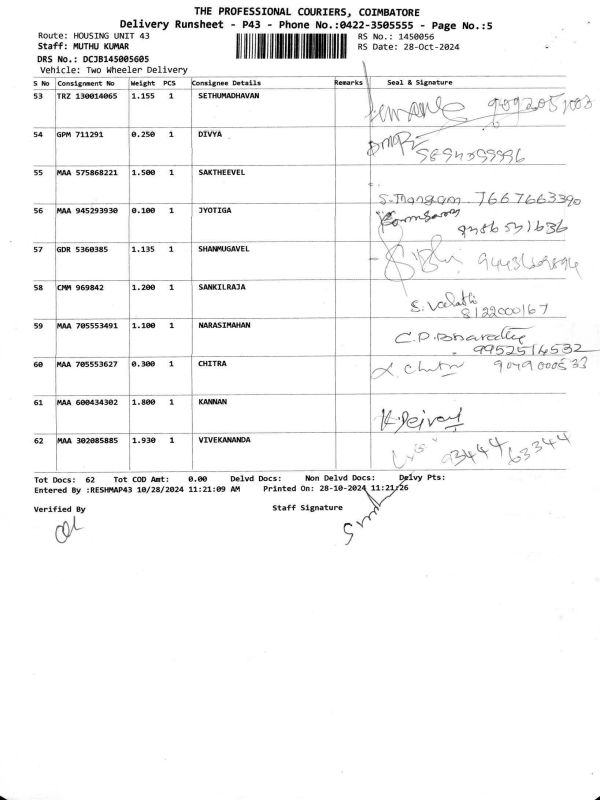 THE PROFESSIONAL COURIERS, COIMBATORE
Delivery Runsheet - P43 - Phone No.:0422-3505555 - Page No.:5
Route: HOUSING UNIT 43 RS No.: 1450056
Staff: MUTHU KUMAR RS Date: 28-Oct-2024
DRS No.: DCJB145005605
Vehicle: Two Wheeler Delivery
S No Consignment No Weight PCS Consignee Details Remarks Seal & Signature
53 TRZ 130014065 1.155 1 SETHUMADHAVAN
54 GPM 711291 0.250 1 DIVYA
55 MAA 575868221 1.500 1 SAKTHEEVEL 7667663390
56 MAA 945293930 0.100 1 JYOTIGA
57 GDR 5360385 1.135 1 SHANMUGAVEL
58 CMM 969842 1.200 1 SANKILRAJA
8122000167
59 MAA 705553491 1.100 1 NARASIMAHAN
9952514532
60 MAA 705553627 0.300 1 CHITRA
61 MAA 600434302 1.800 1 KANNAN
62 MAA 302085885 1.930 1 VIVEKANANDA 93444 63344
Tot Docs: 62 Tot COD Amt: 0.00 Delvd Docs: Non Delvd Docs: Delvy Pts:
Entered By :RESHMAP43 10/28/2024 11:21:09 AM Printed On: 28-10-2024 11:21:26
Verified By Staff Signature